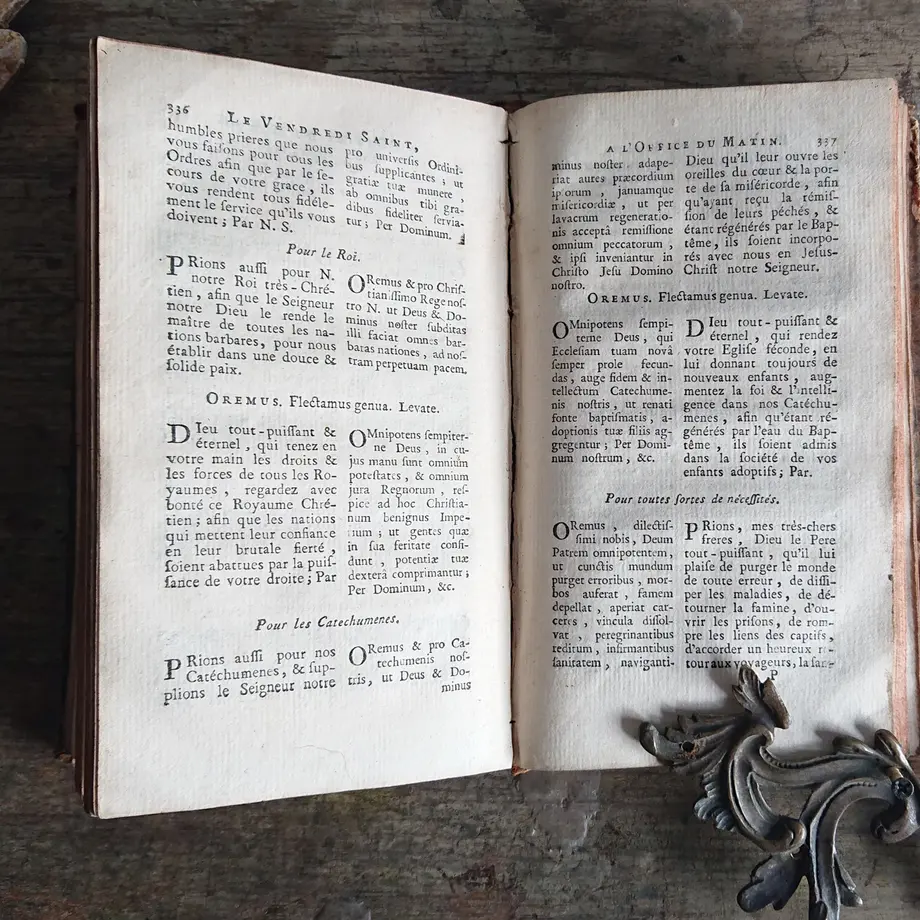 336 LE VENDREDI SAINT,
humbles prieres que nous
vous faisons pour tous les
Ordres afin que par le se-
cours de votre grace, ils
vous rendent tous fidéle-
ment le service qu'ils vous
doivent; Par N. S.
pro universis Ordini-
bus supplicantes; ut
gratiæ tuæ munere,
ab omnibus tibi gra-
dibus fideliter servia-
tur; Per Dominum.
Pour le Roi.
PRions aussi pour N.
notre Roi très-Chré-
tien, afin que le Seigneur
notre Dieu le rende le
maître de toutes les na-
tions barbares, pour nous
établir dans une douce &
solide paix.
ORemus & pro Chris-
tianissimo Rege nos-
tro N. ut Deus & Do-
minus noster subditas
illi faciat omnes bar-
baras nationes, ad nos-
tram perpetuam pacem.
OREMUS. Flectamus genua. Levate.
DIeu tout-puissant &
éternel, qui tenez en
votre main les droits &
les forces de tous les Ro-
yaumes, regardez avec
bonté ce Royaume Chré-
tien; afin que les nations
qui mettent leur confiance
en leur brutale fierté,
soient abattues par la puis-
sance de votre droite; Par
OMnipotens sempiter-
ne Deus, in cu-
jus manu sunt omnium
potestates, & omnium
jura Regnorum, res-
pice ad hoc Christia-
num benignus Impe-
rium; ut gentes quæ
in sua feritate confi-
dunt, potentiæ tuæ
dexterâ comprimantur;
Per Dominum, &c.
Pour les Catechumenes.
PRions aussi pour nos
Catéchumenes, & sup-
plions le Seigneur notre
ORemus & pro Ca-
techumenis nos-
tris, ut Deus & Do-
minus
A L'OFFICE DU MATIN. 337
minus noster adape-
riat aures præcordium
ipsorum, januamque
misericordiæ, ut per
lavacrum regeneratio-
nis acceptâ remissione
omnium peccatorum,
& ipsi inveniantur in
Christo Jesu Domino
nostro.
Dieu qu'il leur ouvre les
oreilles du cœur & la por-
te de sa miséricorde, afin
qu'ayant reçu la rémis-
sion de leurs péchés, &
étant régénérés par le Bap-
tême, ils soient incorpo-
rés avec nous en Jesus-
Christ notre Seigneur.
OREMUS. Flectamus genua. Levate.
OMnipotens sempi-
terne Deus, qui
Ecclesiam tuam novâ
semper prole fecun-
das, auge fidem & in-
tellectum Catechume-
nis nostris, ut renati
fonte baptismatis, a-
doptionis tuæ filiis ag-
gregentur; Per Domi-
num nostrum, &c.
DIeu tout-puissant &
éternel, qui rendez
votre Eglise féconde, en
lui donnant toujours de
nouveaux enfants, aug-
mentez la foi & l'intelli-
gence dans nos Catéchu-
menes, afin qu'étant ré-
générés par l'eau du Bap-
tême, ils soient admis
dans la société de vos
enfants adoptifs; Par.
Pour toutes sortes de nécessités.
ORemus, dilectis-
simi nobis, Deum
Patrem omnipotentem,
ut cunctis mundum
purget erroribus, mor-
bos auferat, famem
depellat, aperiat car-
ceres, vincula dissol-
vat, peregrinantibus
reditum, infirmantibus
sanitatem, naviganti-
PRions, mes très-chers
freres, Dieu le Pere
tout-puissant, qu'il lui
plaise de purger le monde
de toute erreur, de dissi-
per les maladies, de dé-
tourner la famine, d'ou-
vrir les prisons, de rom-
pre les liens des captifs,
d'accorder un heureux re-
tour aux voyageurs, la san-
P